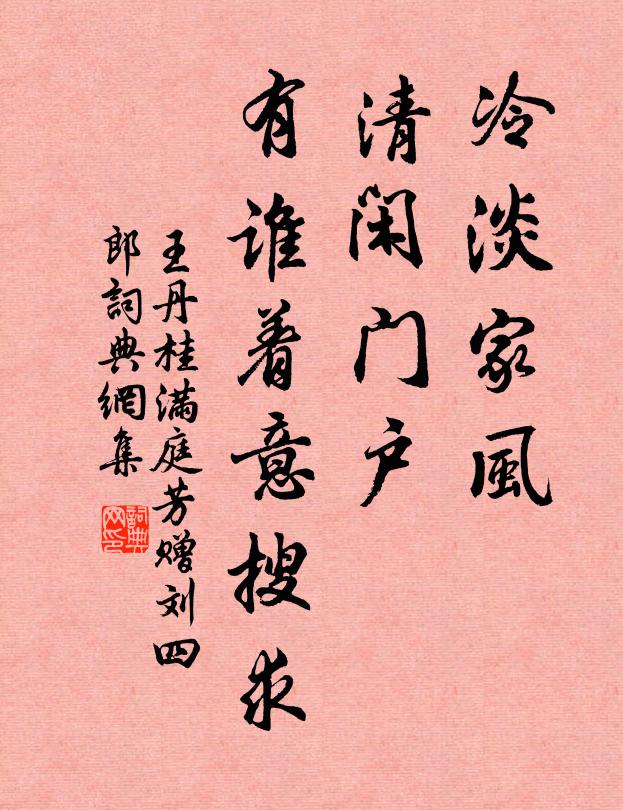 冷淡家風
清闲门户
有谁着意搜求
王丹桂满庭芳赠刘四
郎詞典網集
詞典
网印